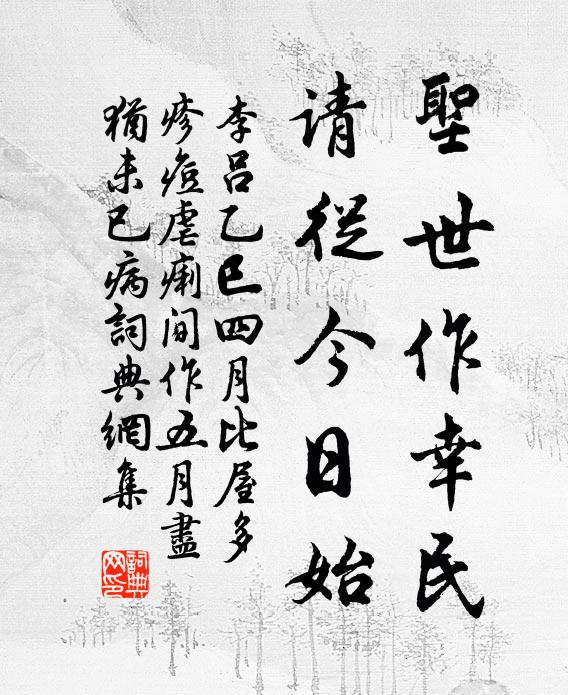 聖世作幸民
请從今日始
李呂乙巳四月比屋多
疹痘虐痢间作五月盡
猶未已病詞典網集
詞典網印